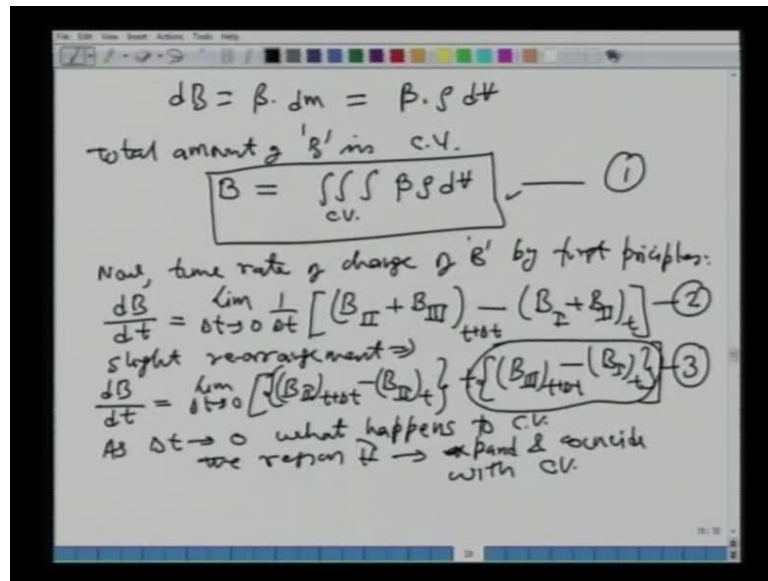 File Edit View Insert Actions Tools Help
dB = β. dm = β. ρ dV
Total amount of 'B' in C.V.
B = ∫∫∫ βρdV —— ①
C.V.
Now, time rate of change of 'B' by first priciples:
dB/dt = Lim Δt→0 1/Δt [(B_II + B_III)_t+Δt — (B_I + B_II)_t] — ②
slight rearrangement ⇒
dB/dt = lim Δt→0 [{(B_II)_t+Δt - (B_II)_t} + {(B_III)_t+Δt - (B_I)_t}] — ③
As Δt → 0 what happens to C.V.
the region II → expand & coincide
with CV.